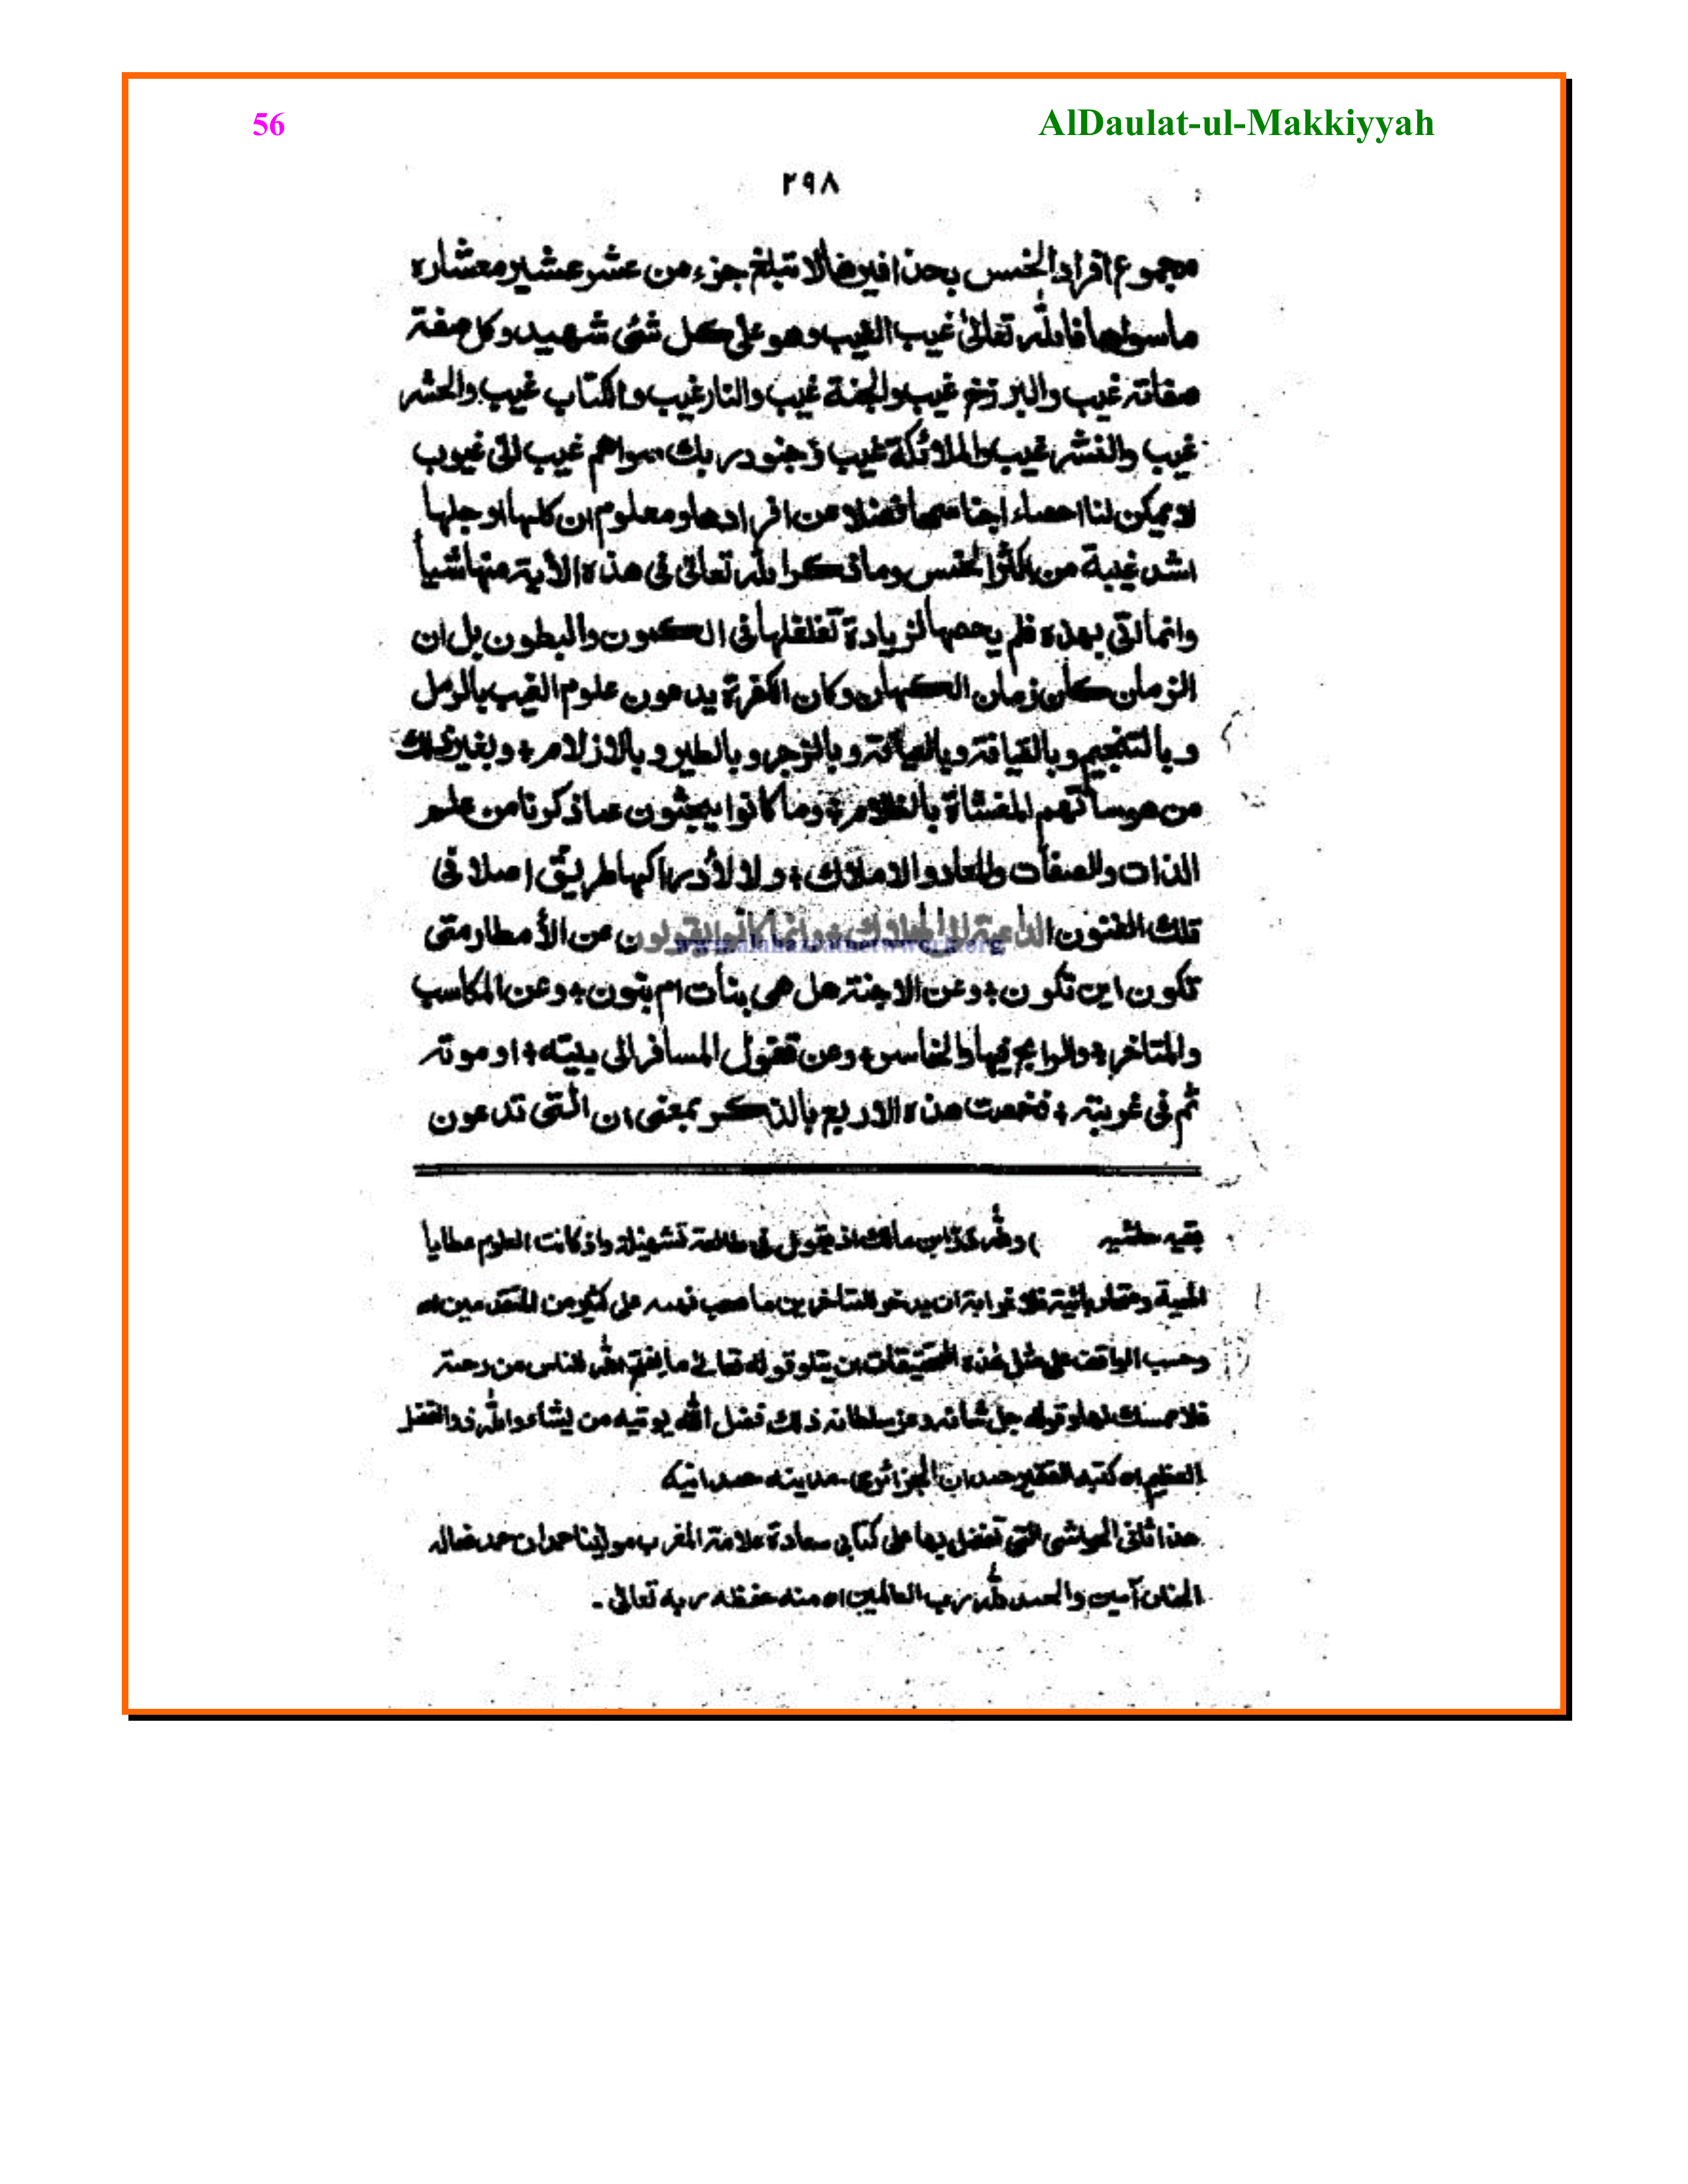 56
AlDaulat-ul-Makkiyyah
٢٩٨
مجموع افراد الخمس بحذافيرها لا تبلغ جزء من عشر عشير معشاره
ما سواها فالله تعالىٰ غيب الغيب وهو على كل شئ شهيد وكل صفة
صفاته غيب والبرزخ غيب والجنة غيب والنار غيب والكتاب غيب والحشر
غيب والنشر غيب والملائكة غيب وجنود ربك سواهم غيب الى غيوب
لا يمكن لنا احصاء اجناسها فضلا عن افرادها ومعلوم ان كلها او جلها
اشد غيبة من اكثر الخمس وما ذكر الله تعالى فى هذه الأية منها شيأ
وانما اتى بهذه فلم يخصها لزيادة تغلغلها فى الكمون والبطون بل ان
الزمان كان زمان الكهان وكان الكفرة يدعون علوم الغيب بالرمل
وبالتنجيم وبالقيافة وبالعيافة وبالزجر وبالطير وبالازلام ۔ وبغير ذلك
من هوساتهم المغشاة بالظلام ۔ وما كانوا يبحثون عما ذكرنا من علم
الذات والصفات والمعاد والاملاك ۔ ولا لأدراكها طريق اصلا فى
تلك الفنون الداعية الى الهلاك ۔ وانما كانوا يقولون عن الأمطار متى
www.alahazratnetwork.org
تكون اين تكون ۔ وعن الاجنة هل هى بنات ام بنون ۔ وعن المكاسب
والمتاجر ۔ والرابح فيها والخاسر ۔ وعن قفول المسافر الى بيته ۔ او موته
ثم فى غربته ۔ فخصت هذه الاربع بالذكر بمعنى ان التى تدعون
بقيه حاشيه ) ولله در ابن مالك اذ يقول فى طالعة تسهيله واذ كانت العلوم عطايا
الهية ومنحا ربانية فلا غرابة ان يدخر للمتاخرين ما صعب فهمه على كثير من المتقدمين اه
وحسب الواقف على مثل هذه التحقيقات ان يتلو قوله تعالىٰ ما يفتح الله للناس من رحمة
فلا ممسك لها وقوله جل شانه وعز سلطانه ذلك فضل الله يوتيه من يشاء والله ذو الفضل
العظيم اه كتبه الفقير حمدان الجزائرى مدينه حمدانيه
هذا ثانى الحواشى التى تفضل بها على كتابى سعادة علامة المغرب مولينا حمدان حمد فعاله
المنان آمين والحمد لله رب العالمين اه منه حفظه ربه تعالى ۔